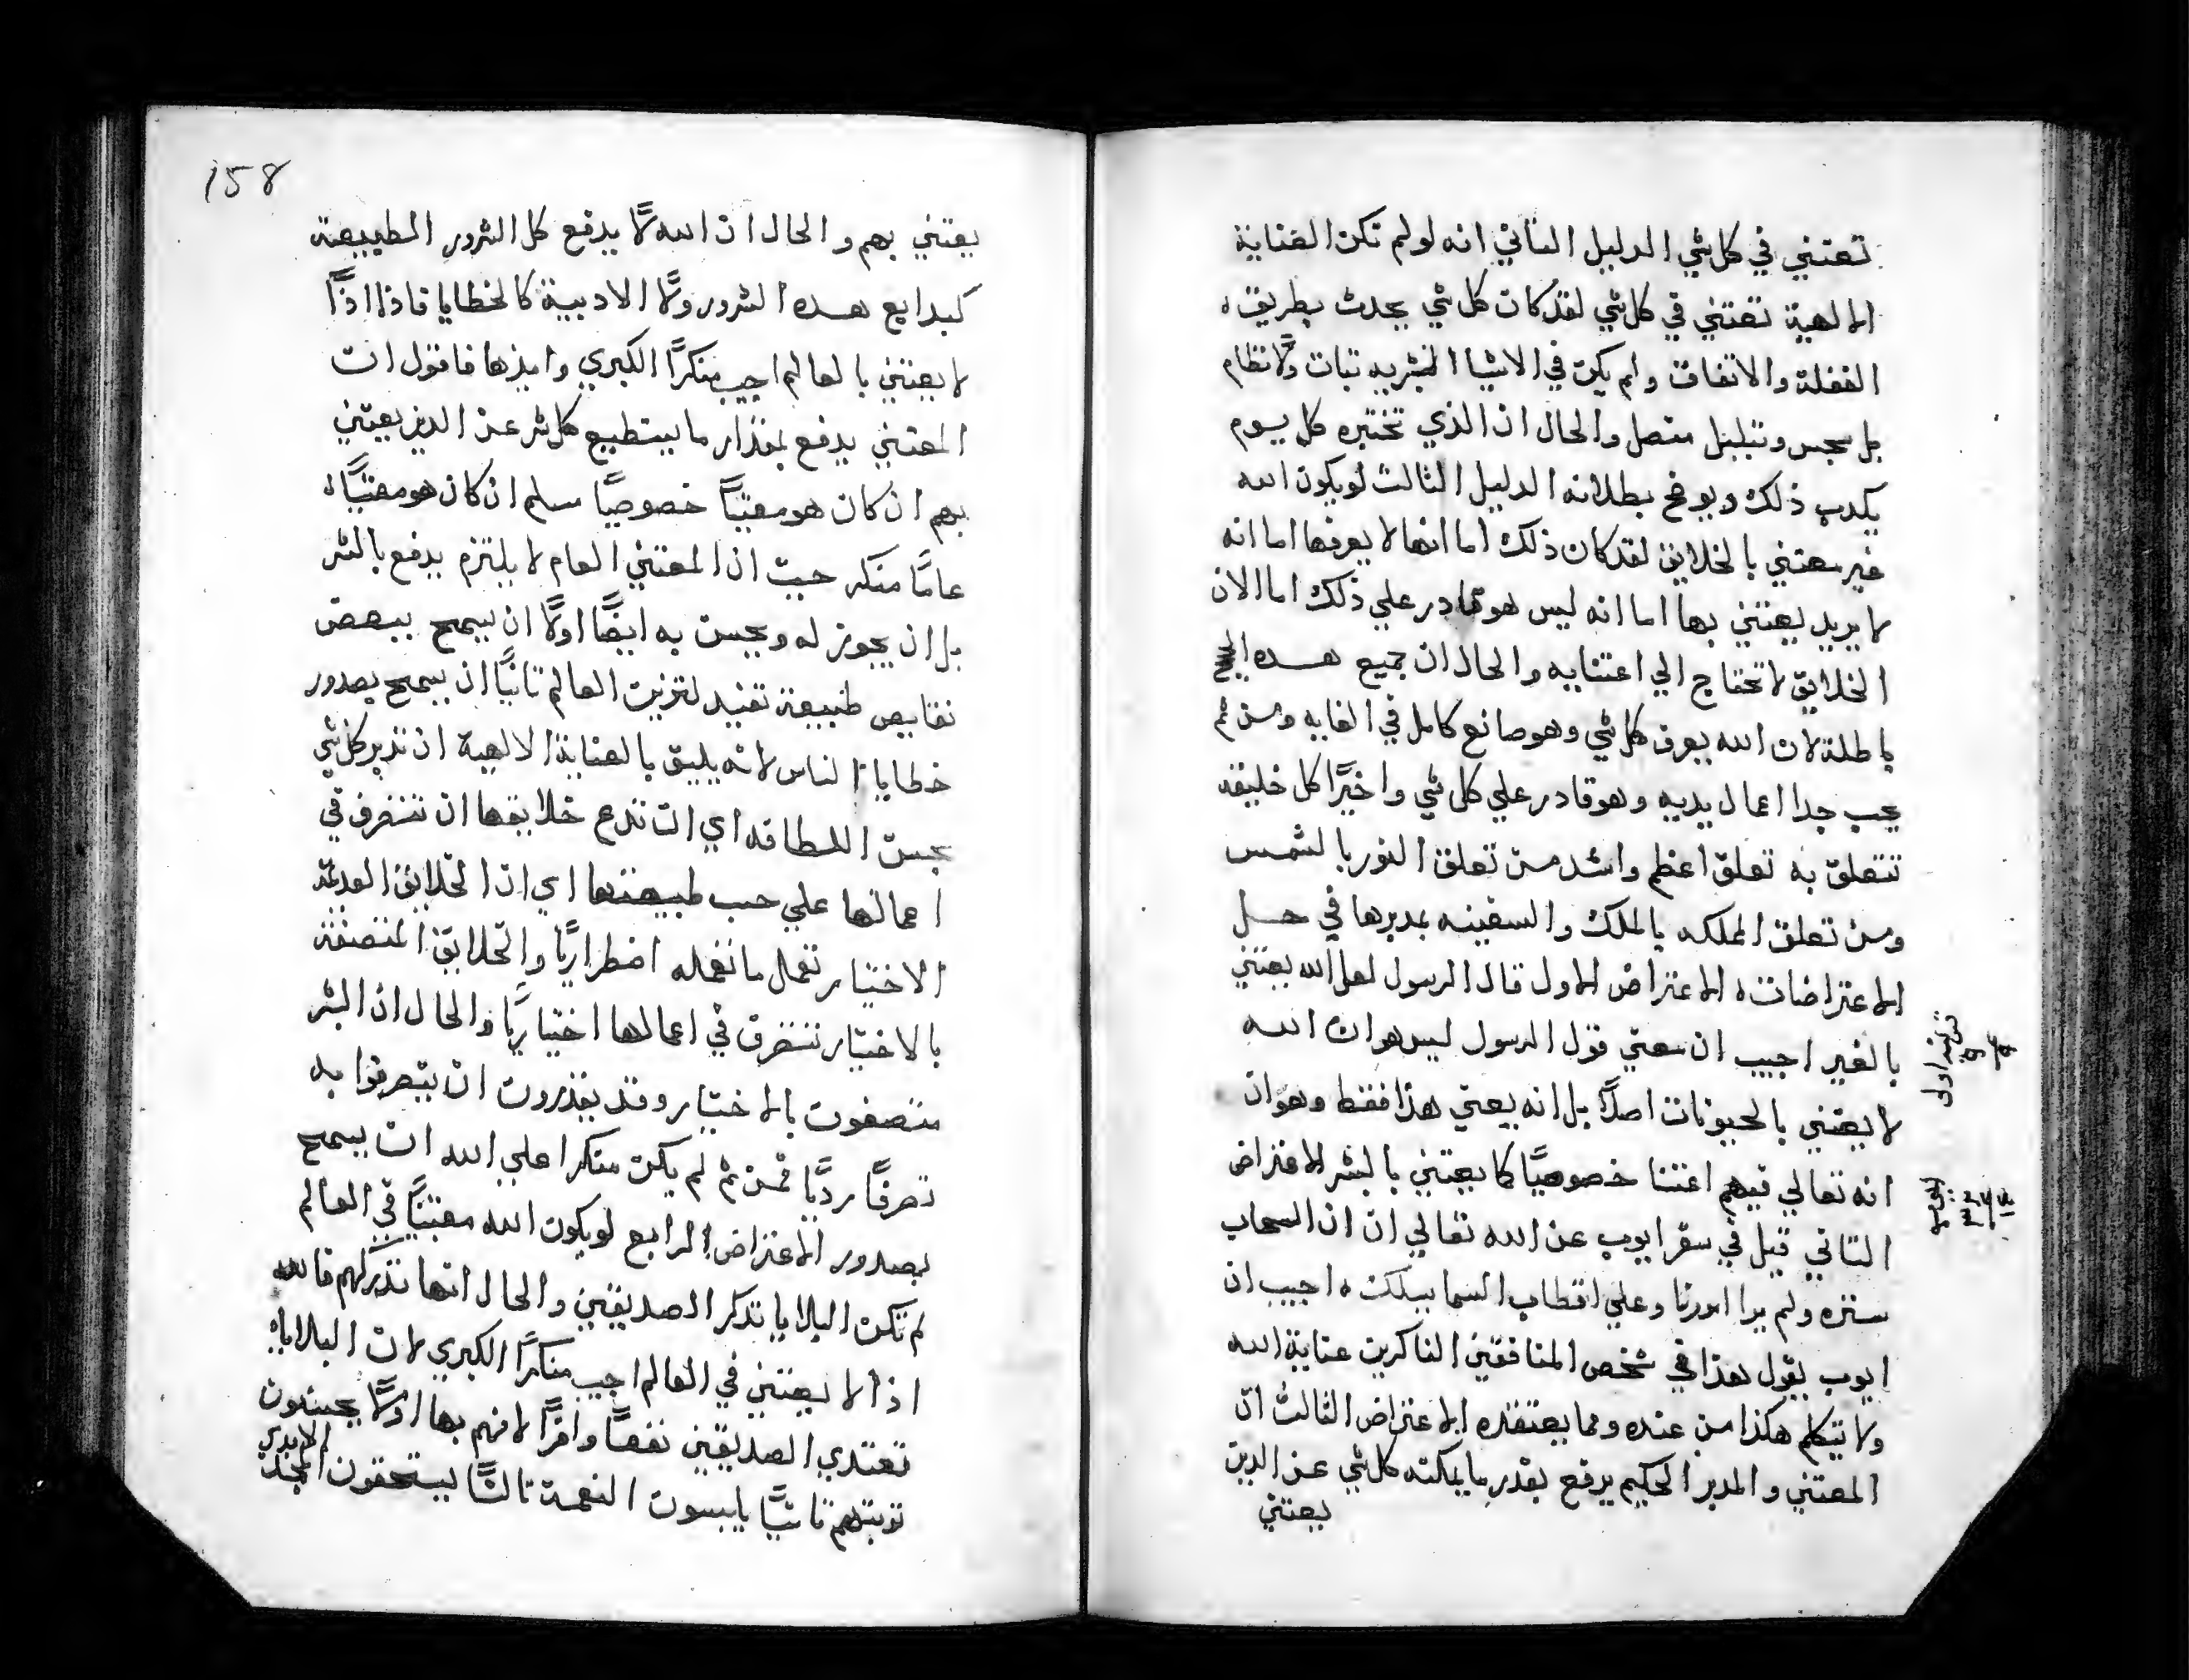 تعتني في كل شي الدليل التاني انه لو لم تكن العناية
الالهية تعتني في كل شي لقد كان كل شي يحدث بطريقه
الغفلة والاتفاق ولم يكن في الاشيا البشريه تبات ولا نظام
بل سجس وتبلبل متصل والحال ان الذي تختبره كل يوم
يكدب ذلك ويوضح بطلانه الدليل الثالث لو يكون الله
غير معتني بالخلايق لقد كان ذلك اما انها لا يعرفها اما انه
لا يريد يعتني بها اما انه ليس هو قادر علي ذلك اما الان
الخلايق لا تحتاج الي اعتنايه والحال ان جميع هده
باطلة لان الله يعرف كل شي وهو صانع كامل في الغايه ومن تم
يحب جدا اعمال يديه وهو قادر علي كل شي واخيرًا كل خليقه
تتعلق به تعلق اعظم واشد من تعلق النور بالشمس
ومن تعلق المملكه بالملك والسفينه بمدبرها في حل
الاعتراضات ه الاعتراض الاول قال الرسول لعل الله يعتني
بالغير اجيب ان معني قول الرسول ليس هو ان الله
لا يعتني بالحيونات اصلًا بل انه يعني هذا فقط وهو ان
انه تعالي فيهم اعتنا خصوصيًا كما يعتني بالبشر الاعتراض
التاني قيل في سفر ايوب عن الله تعالي ان ان السحاب
ستره ولم يرا امورنا وعلي اقطاب السما يسلك ه اجيب ان
ايوب يقول هذا في شخص المنافقين الناكرين عناية الله
ولا يتكلم هكذا من عنده ومما يعتقده الاعتراض الثالث ان
المعتني والمدبر الحكيم يرفع بقدر ما يمكنه كل شي عن الدين
يعتني
158
يعتني بهم والحال ان الله لا يدفع كل الشرور الطبيعية
كبدايع هده الشرور ولا الادبية كالخطايا فاذا اذًا
لا يعتني بالعالم اجيب منكرًا الكبري واميزها فاقول ان
المعتني يدفع بمقدار ما يستطيع كل شر عن الدين يعتني
بهم ان كان هو معتنيًا خصوصيًا مسلم ان كان هو معتنيًا
عامًا منكر حيث ان المعتني العام لا يلتزم يدفع بالشر
بل ان يجوز له ويحسن به ايضًا اولًا ان يسمح ببعض
نقايص طبيعة تفيد لتزيين العالم تانيًا ان يسمح بصدور
خطايا الناس لانه يليق بالعناية الالهية ان تدبر كل شي
بحسن اللطافه اي ان تدع خلايقها ان تتصرف في
اعمالها علي حسب طبيعتها اي ان الخلايق العديمة
الاختيار تعمل ما تعمله اضطراريًا والخلايق المتصفة
بالاختيار تتصرف في اعمالها اختياريًا والحال ان البشر
متصفون بالاختيار وقد يقدرون ان يتصرفوا به
تصرفًا رديًا فمن تم لم يكن منكرا علي الله ان يسمح
بصدور الاعتراض الرابع لو يكون الله معتنيًا في العالم
لم تكن البلايا تدكر الصديقين والحال انها تدركهم فالله
اذا لا يعتني في العالم اجيب منكرًا الكبري لان البلايا
تعتدي الصديقين نفعًا وافرًا لانهم بها اولًا يحسنون
توبتهم تانيًا يلبسون النعمة تالثًا يستحقون المجد الابدي